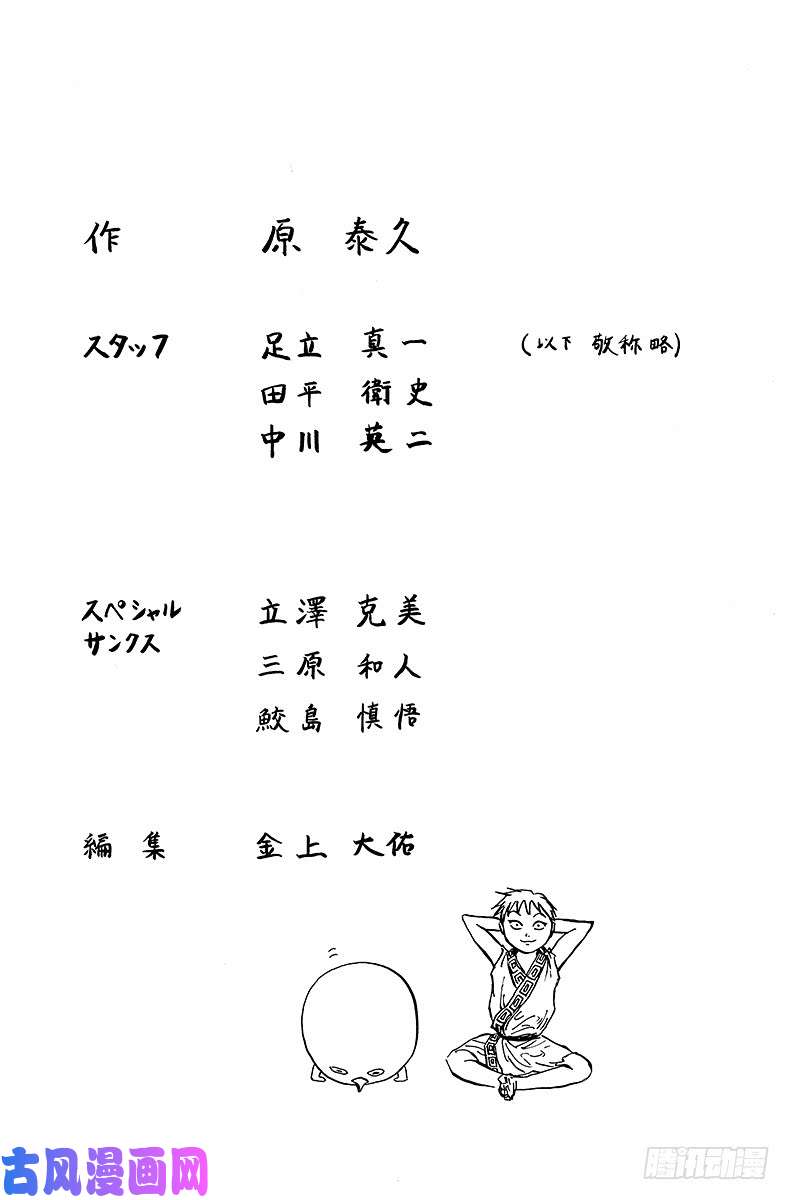 作 原 泰久
スタッフ 足立 真一 (以下 敬称略)
田平 衛史
中川 英二
スペシャル
サンクス 立澤 克美
三原 和人
鮫島 慎悟
編集 金上 大佑
古风漫画网
腾讯动漫